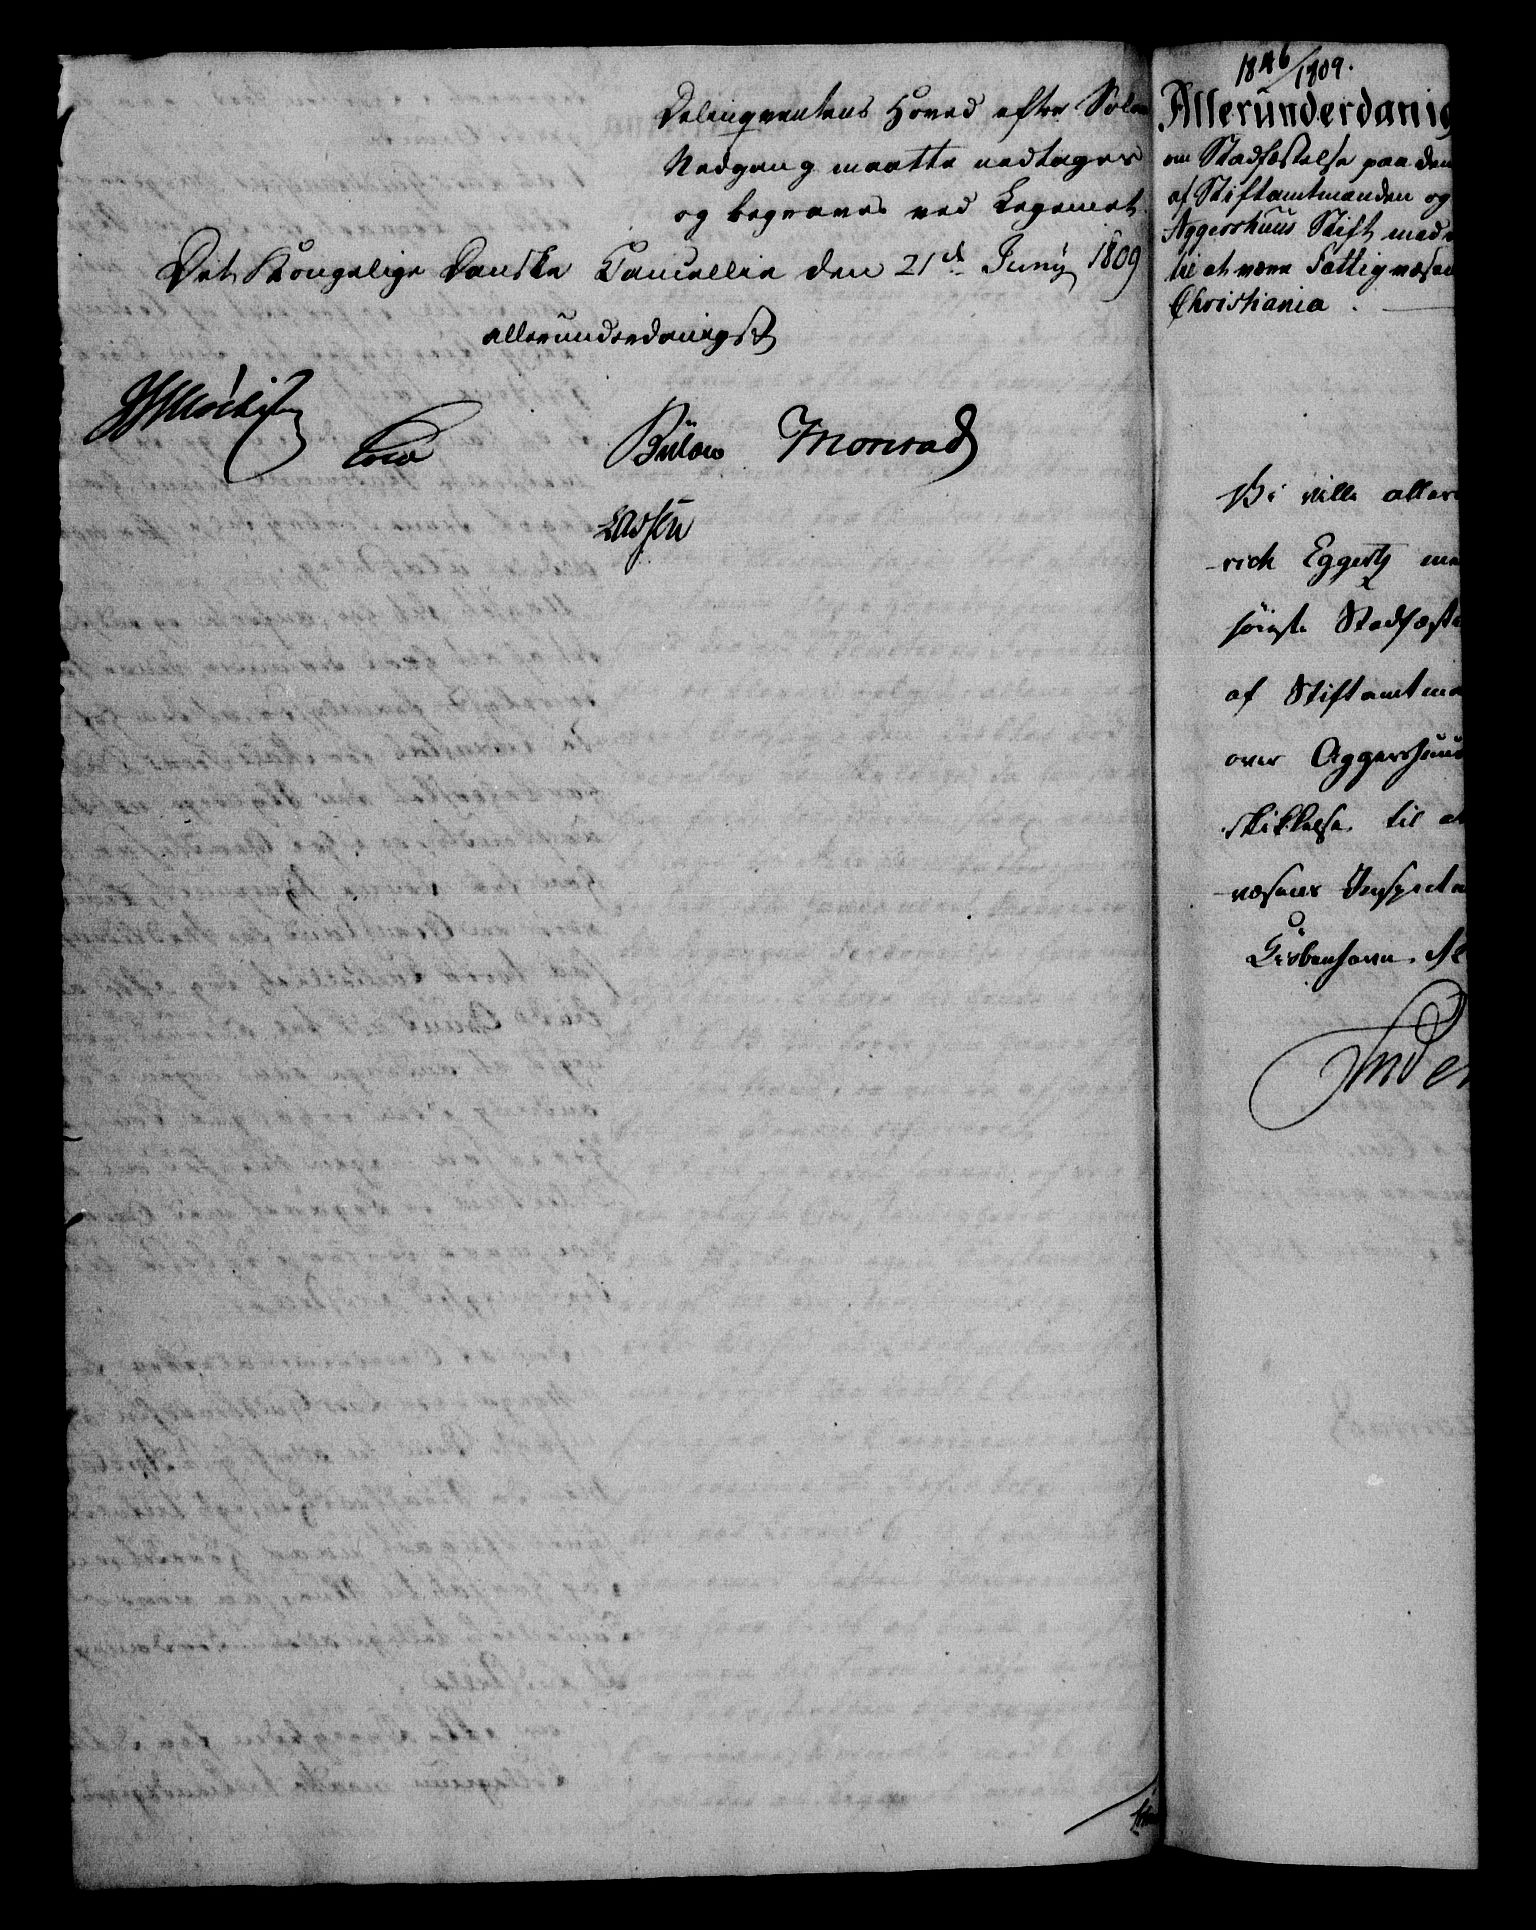 Delinqventens Hoved efter Solens
Nedgang maatte nedtages
og begraves ved Legemet.
Det Kongelige Danske Cancellie den 21de Junÿ 1809
allerunderdanigst
Bülow Monrad
Lassen
1846/1809.
Allerunderdanig
om Stadfæstelse paa den
af Stiftamtmanden og
Aggershuus Stift med
til at være Fattigvæsen
Christiania.
Vi ville aller
-rich Eggertz
Stadfæste
af Stiftamtma
over Aggershuus
skikkelse til at
-væsenes Inspecteu
Kiöbenhavn.
Under